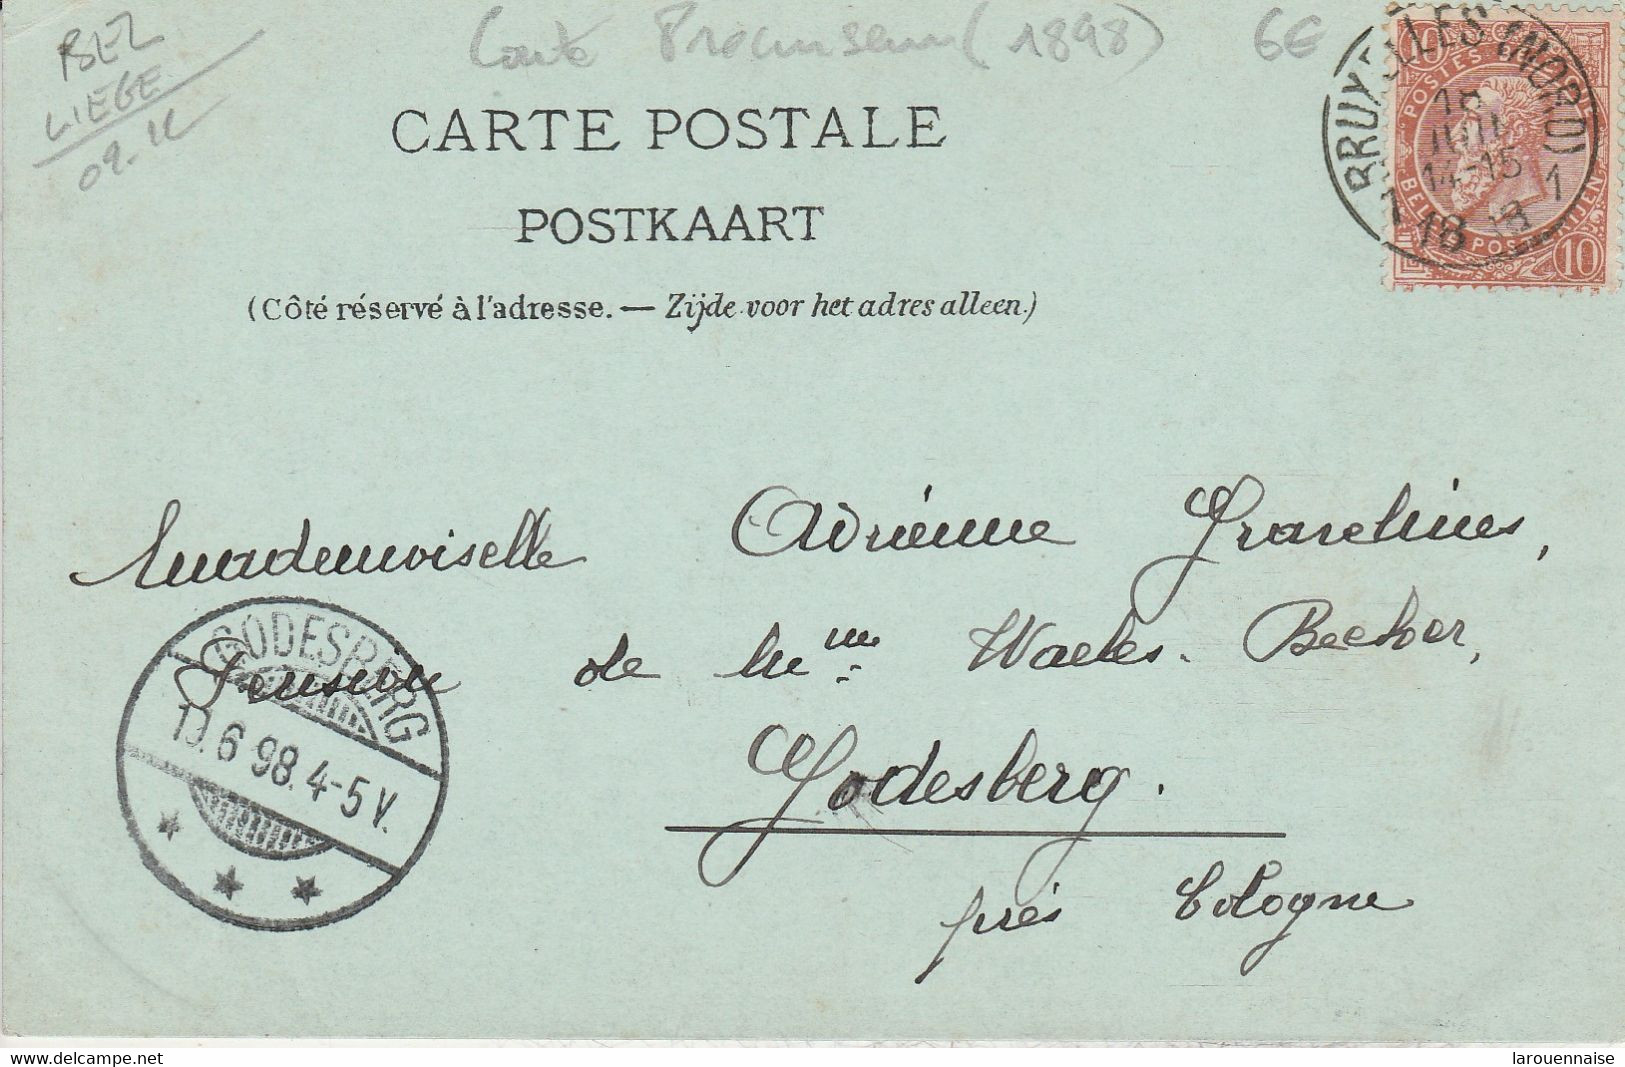 BEL
LIEGE
09-12
Carte Précurseur (1898) 6€
CARTE POSTALE
POSTKAART
(Côté réservé à l'adresse. — Zijde voor het adres alleen.)
BRUXELLES (NORD) 1
JUIN
14-15
10
POSTES
10
Mademoiselle Adrienne
Pension de Mme Waeles-Becker,
Godesberg.
près Cologne
GODESBERG
6 98. 4-5 V.
www.delcampe.net
larouennaise